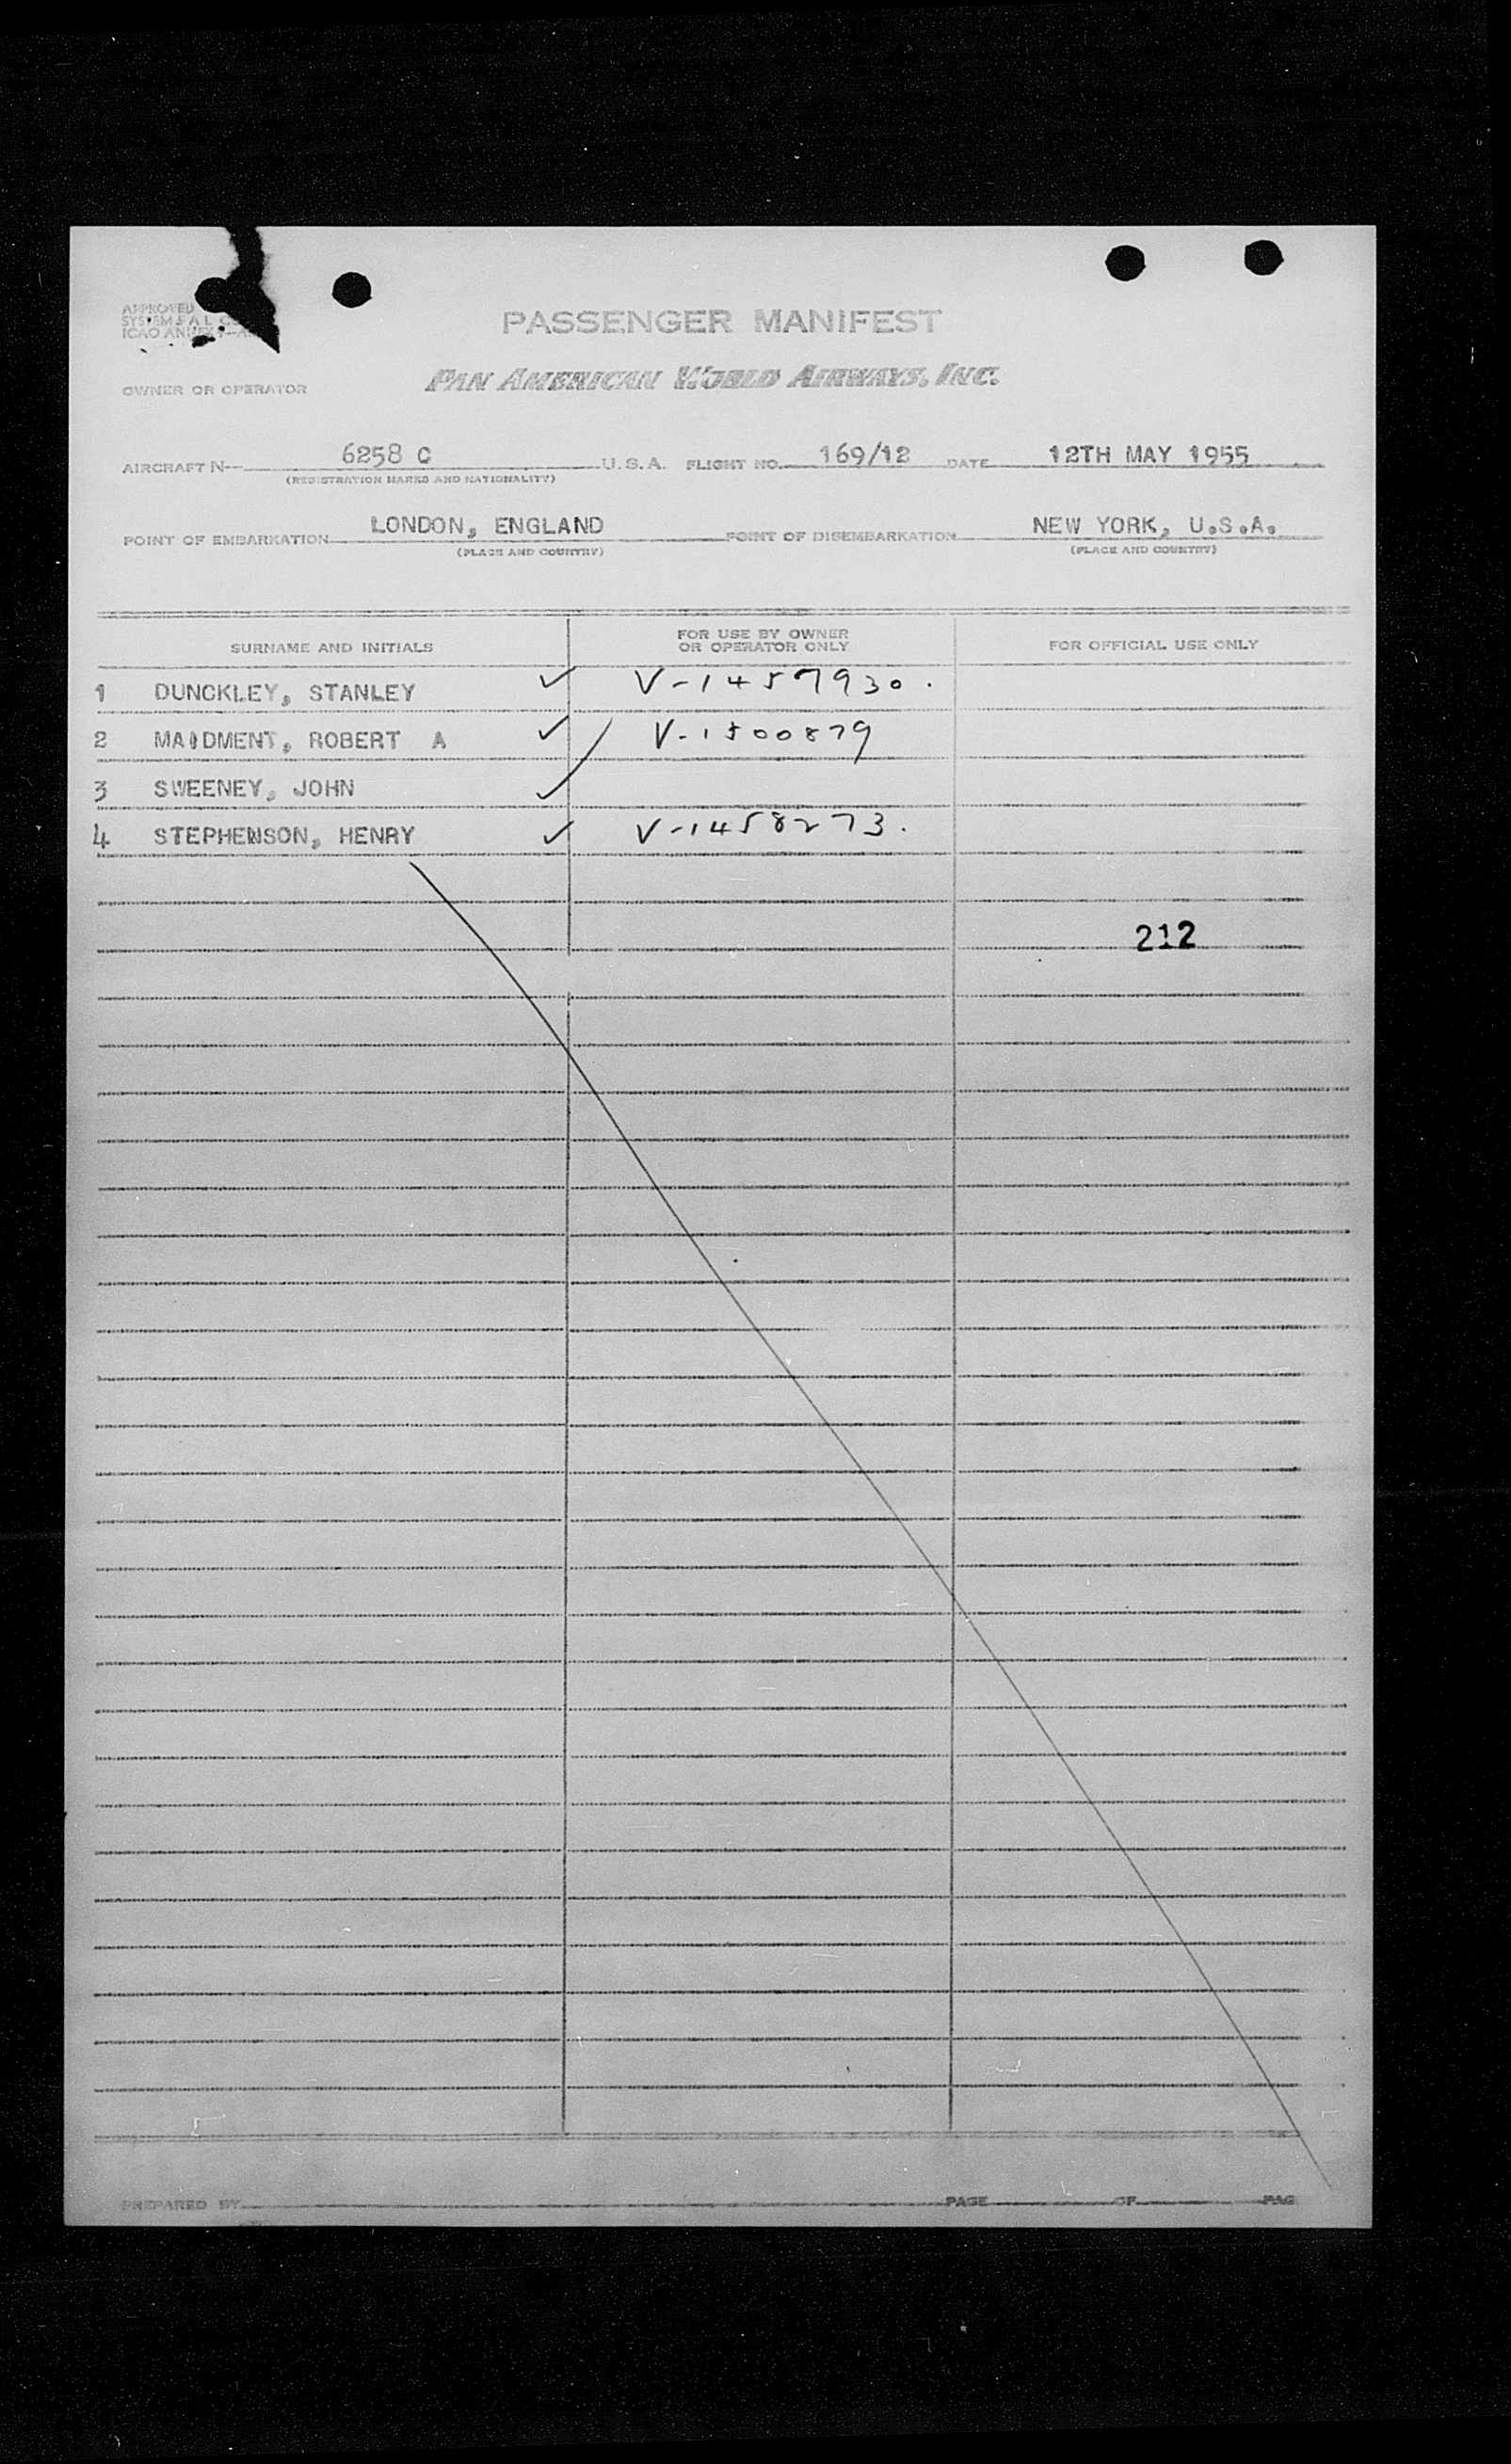 APPROVED
SYSTEM F.A.L.
ICAO ANNEX 9
PASSENGER MANIFEST
OWNER OR OPERATOR PAN AMERICAN WORLD AIRWAYS, INC.
AIRCRAFT N— 6258 C U.S.A. FLIGHT NO. 169/12 DATE 12TH MAY 1955
(REGISTRATION MARKS AND NATIONALITY)
POINT OF EMBARKATION LONDON, ENGLAND POINT OF DISEMBARKATION NEW YORK, U.S.A.
(PLACE AND COUNTRY) (PLACE AND COUNTRY)
SURNAME AND INITIALS FOR USE BY OWNER OR OPERATOR ONLY FOR OFFICIAL USE ONLY
1 DUNCKLEY, STANLEY ✓ V-1457930.
2 MAIDMENT, ROBERT A ✓ V-1500879
3 SWEENEY, JOHN ✓
4 STEPHENSON, HENRY ✓ V-1458273.
212
PREPARED BY PAGE OF PAG